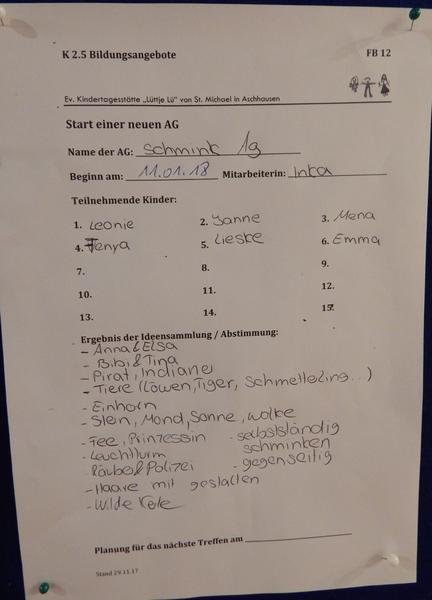 K 2.5 Bildungsangebote FB 12
Ev. Kindertagesstätte „Lüttje Lü" von St. Michael in Aschhausen
Start einer neuen AG
Name der AG: Schmink Ag
Beginn am: 11.01.18 Mitarbeiterin: Inka
Teilnehmende Kinder:
1. Leonie 2. Janne 3. Mena
4. Fenya 5. Lieske 6. Emma
7. 8. 9.
10. 11. 12.
13. 14. 15.
Ergebnis der Ideensammlung / Abstimmung:
- Anna & Elsa
- Bibi & Tina
- Pirat, Indianer
- Tiere (Löwen, Tiger, Schmetterling...)
- Einhorn
- Stern, Mond, Sonne, Wolke
- Fee, Prinzessin - selbstständig
- Leuchtturm schminken
Räuber & Polizei - gegenseitig
- Haare mit gestalten
- Wilde Kerle
Planung für das nächste Treffen am
Stand 29.11.17